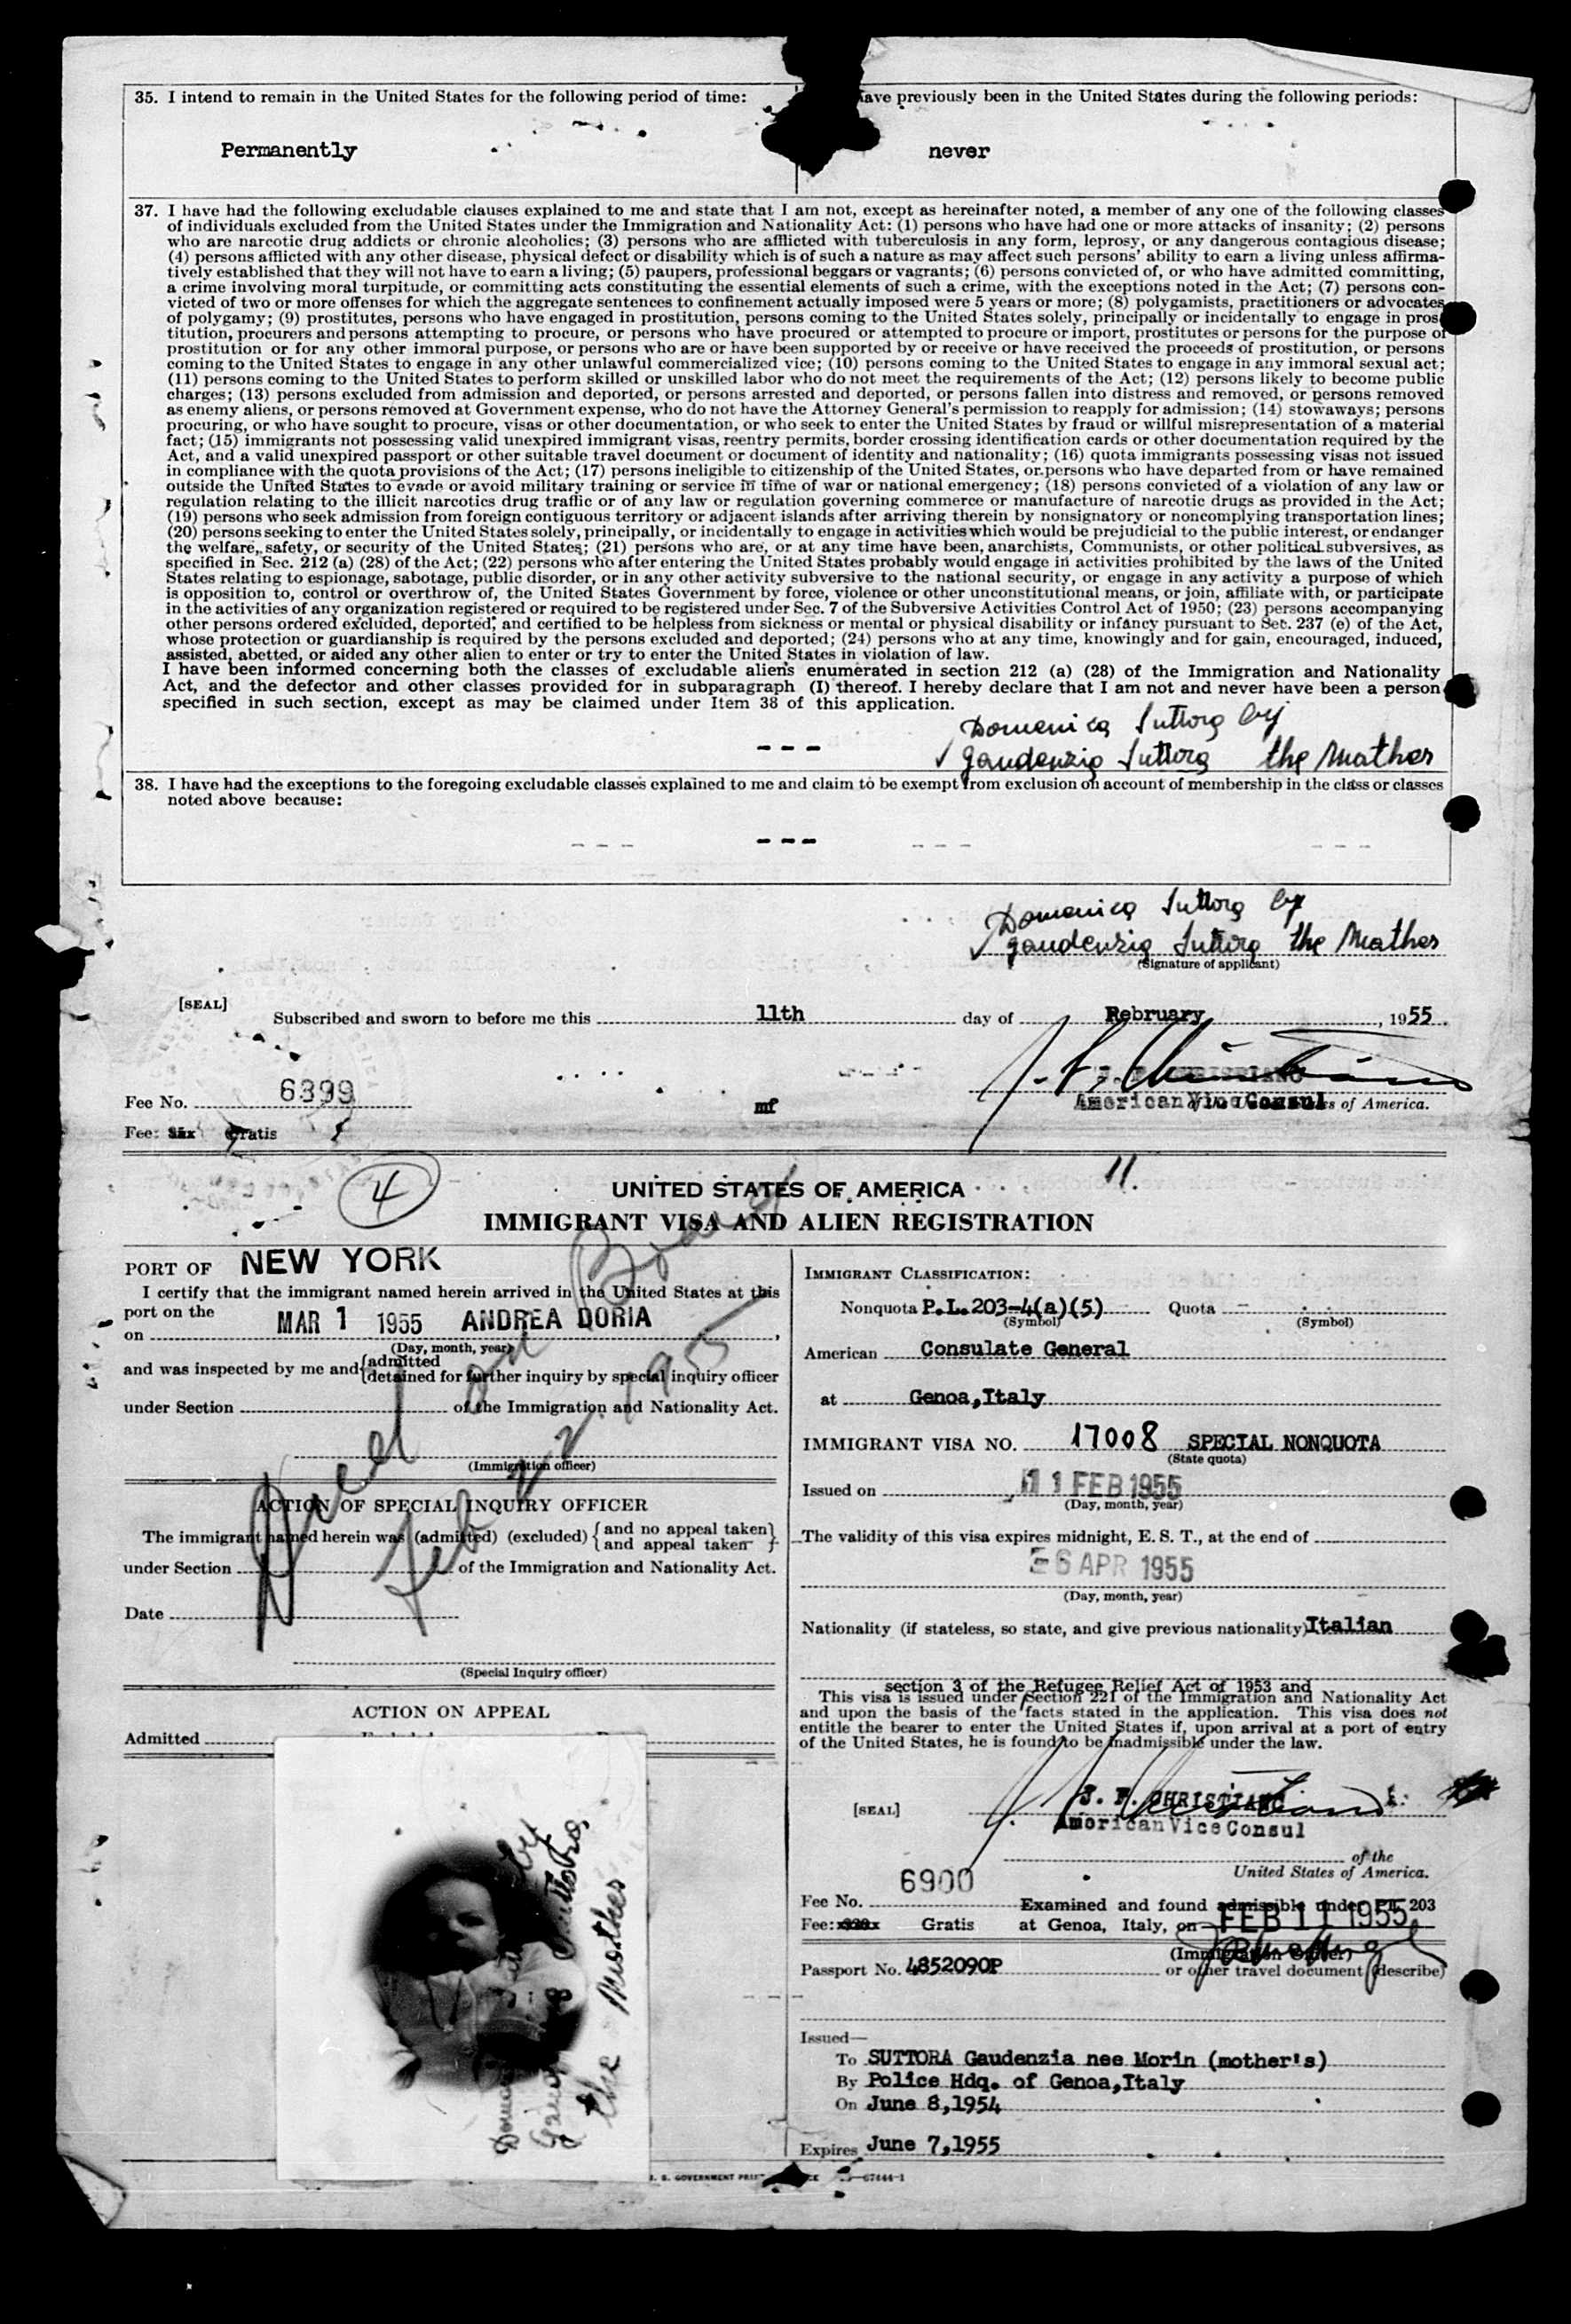 35. I intend to remain in the United States for the following period of time:
have previously been in the United States during the following periods:
Permanently
never
37. I have had the following excludable clauses explained to me and state that I am not, except as hereinafter noted, a member of any one of the following classes
of individuals excluded from the United States under the Immigration and Nationality Act: (1) persons who have had one or more attacks of insanity; (2) persons
who are narcotic drug addicts or chronic alcoholics; (3) persons who are afflicted with tuberculosis in any form, leprosy, or any dangerous contagious disease;
(4) persons afflicted with any other disease, physical defect or disability which is of such a nature as may affect such persons' ability to earn a living unless affirma-
tively established that they will not have to earn a living; (5) paupers, professional beggars or vagrants; (6) persons convicted of, or who have admitted committing,
a crime involving moral turpitude, or committing acts constituting the essential elements of such a crime, with the exceptions noted in the Act; (7) persons con-
victed of two or more offenses for which the aggregate sentences to confinement actually imposed were 5 years or more; (8) polygamists, practitioners or advocates
of polygamy; (9) prostitutes, persons who have engaged in prostitution, persons coming to the United States solely, principally or incidentally to engage in pros-
titution, procurers and persons attempting to procure, or persons who have procured or attempted to procure or import, prostitutes or persons for the purpose of
prostitution or for any other immoral purpose, or persons who are or have been supported by or receive or have received the proceeds of prostitution, or persons
coming to the United States to engage in any other unlawful commercialized vice; (10) persons coming to the United States to engage in any immoral sexual act;
(11) persons coming to the United States to perform skilled or unskilled labor who do not meet the requirements of the Act; (12) persons likely to become public
charges; (13) persons excluded from admission and deported, or persons arrested and deported, or persons fallen into distress and removed, or persons removed
as enemy aliens, or persons removed at Government expense, who do not have the Attorney General's permission to reapply for admission; (14) stowaways; persons
procuring, or who have sought to procure, visas or other documentation, or who seek to enter the United States by fraud or willful misrepresentation of a material
fact; (15) immigrants not possessing valid unexpired immigrant visas, reentry permits, border crossing identification cards or other documentation required by the
Act, and a valid unexpired passport or other suitable travel document or document of identity and nationality; (16) quota immigrants possessing visas not issued
in compliance with the quota provisions of the Act; (17) persons ineligible to citizenship of the United States, or persons who have departed from or have remained
outside the United States to evade or avoid military training or service in time of war or national emergency; (18) persons convicted of a violation of any law or
regulation relating to the illicit narcotics drug traffic or of any law or regulation governing commerce or manufacture of narcotic drugs as provided in the Act;
(19) persons who seek admission from foreign contiguous territory or adjacent islands after arriving therein by nonsignatory or noncomplying transportation lines;
(20) persons seeking to enter the United States solely, principally, or incidentally to engage in activities which would be prejudicial to the public interest, or endanger
the welfare, safety, or security of the United States; (21) persons who are, or at any time have been, anarchists, Communists, or other political subversives, as
specified in Sec. 212 (a) (28) of the Act; (22) persons who after entering the United States probably would engage in activities prohibited by the laws of the United
States relating to espionage, sabotage, public disorder, or in any other activity subversive to the national security, or engage in any activity a purpose of which
is opposition to, control or overthrow of, the United States Government by force, violence or other unconstitutional means, or join, affiliate with, or participate
in the activities of any organization registered or required to be registered under Sec. 7 of the Subversive Activities Control Act of 1950; (23) persons accompanying
other persons ordered excluded, deported, and certified to be helpless from sickness or mental or physical disability or infancy pursuant to Sec. 237 (e) of the Act,
whose protection or guardianship is required by the persons excluded and deported; (24) persons who at any time, knowingly and for gain, encouraged, induced,
assisted, abetted, or aided any other alien to enter or try to enter the United States in violation of law.
I have been informed concerning both the classes of excludable aliens enumerated in section 212 (a) (28) of the Immigration and Nationality
Act, and the defector and other classes provided for in subparagraph (I) thereof. I hereby declare that I am not and never have been a person
specified in such section, except as may be claimed under Item 38 of this application.
Domenica Suttora by
--- ✓ Gaudenzia Suttora the Mather
38. I have had the exceptions to the foregoing excludable classes explained to me and claim to be exempt from exclusion on account of membership in the class or classes
noted above because:
--- --- --- ---
Domenica Suttora by
✓ Gaudenzia Suttora the Mather
(Signature of applicant)
[SEAL]
Subscribed and sworn to before me this 11th day of February, 1955
J. F. CHRISTIANO
Fee No. 6899
mf
American Vice Consul
of the United States of America.
Fee: Gratis
4
11.
UNITED STATES OF AMERICA
IMMIGRANT VISA AND ALIEN REGISTRATION
PORT OF NEW YORK
I certify that the immigrant named herein arrived in the United States at this
port on the
on MAR 1 1955 ANDREA DORIA,
(Day, month, year)
and was inspected by me and {admitted
detained for further inquiry by special inquiry officer
under Section of the Immigration and Nationality Act.
(Immigration officer)
ACTION OF SPECIAL INQUIRY OFFICER
The immigrant named herein was (admitted) (excluded) {and no appeal taken}
{and appeal taken }
under Section of the Immigration and Nationality Act.
Date
(Special Inquiry officer)
ACTION ON APPEAL
Admitted
Feb 22 1955
IMMIGRANT CLASSIFICATION:
Nonquota P.L.203-4(a)(5) Quota -
(Symbol) (Symbol)
American Consulate General
at Genoa,Italy
IMMIGRANT VISA NO. 17008 SPECIAL NONQUOTA
(State quota)
Issued on 11 FEB 1955
(Day, month, year)
The validity of this visa expires midnight, E. S. T., at the end of
26 APR 1955
(Day, month, year)
Nationality (if stateless, so state, and give previous nationality) Italian
section 3 of the Refugee Relief Act of 1953 and
This visa is issued under Section 221 of the Immigration and Nationality Act
and upon the basis of the facts stated in the application. This visa does not
entitle the bearer to enter the United States if, upon arrival at a port of entry
of the United States, he is found to be inadmissible under the law.
J. F. CHRISTIANO
[SEAL]
American Vice Consul
of the
United States of America.
Fee No. 6900
Examined and found admissible under PL 203
Fee: Gratis at Genoa, Italy, on FEB 11 1955
(Immigration Officer)
Passport No. 4852090P or other travel document (describe)
Issued—
To SUTTORA Gaudenzia nee Morin (mother's)
By Police Hdq. of Genoa,Italy
On June 8,1954
Expires June 7,1955
the Mother